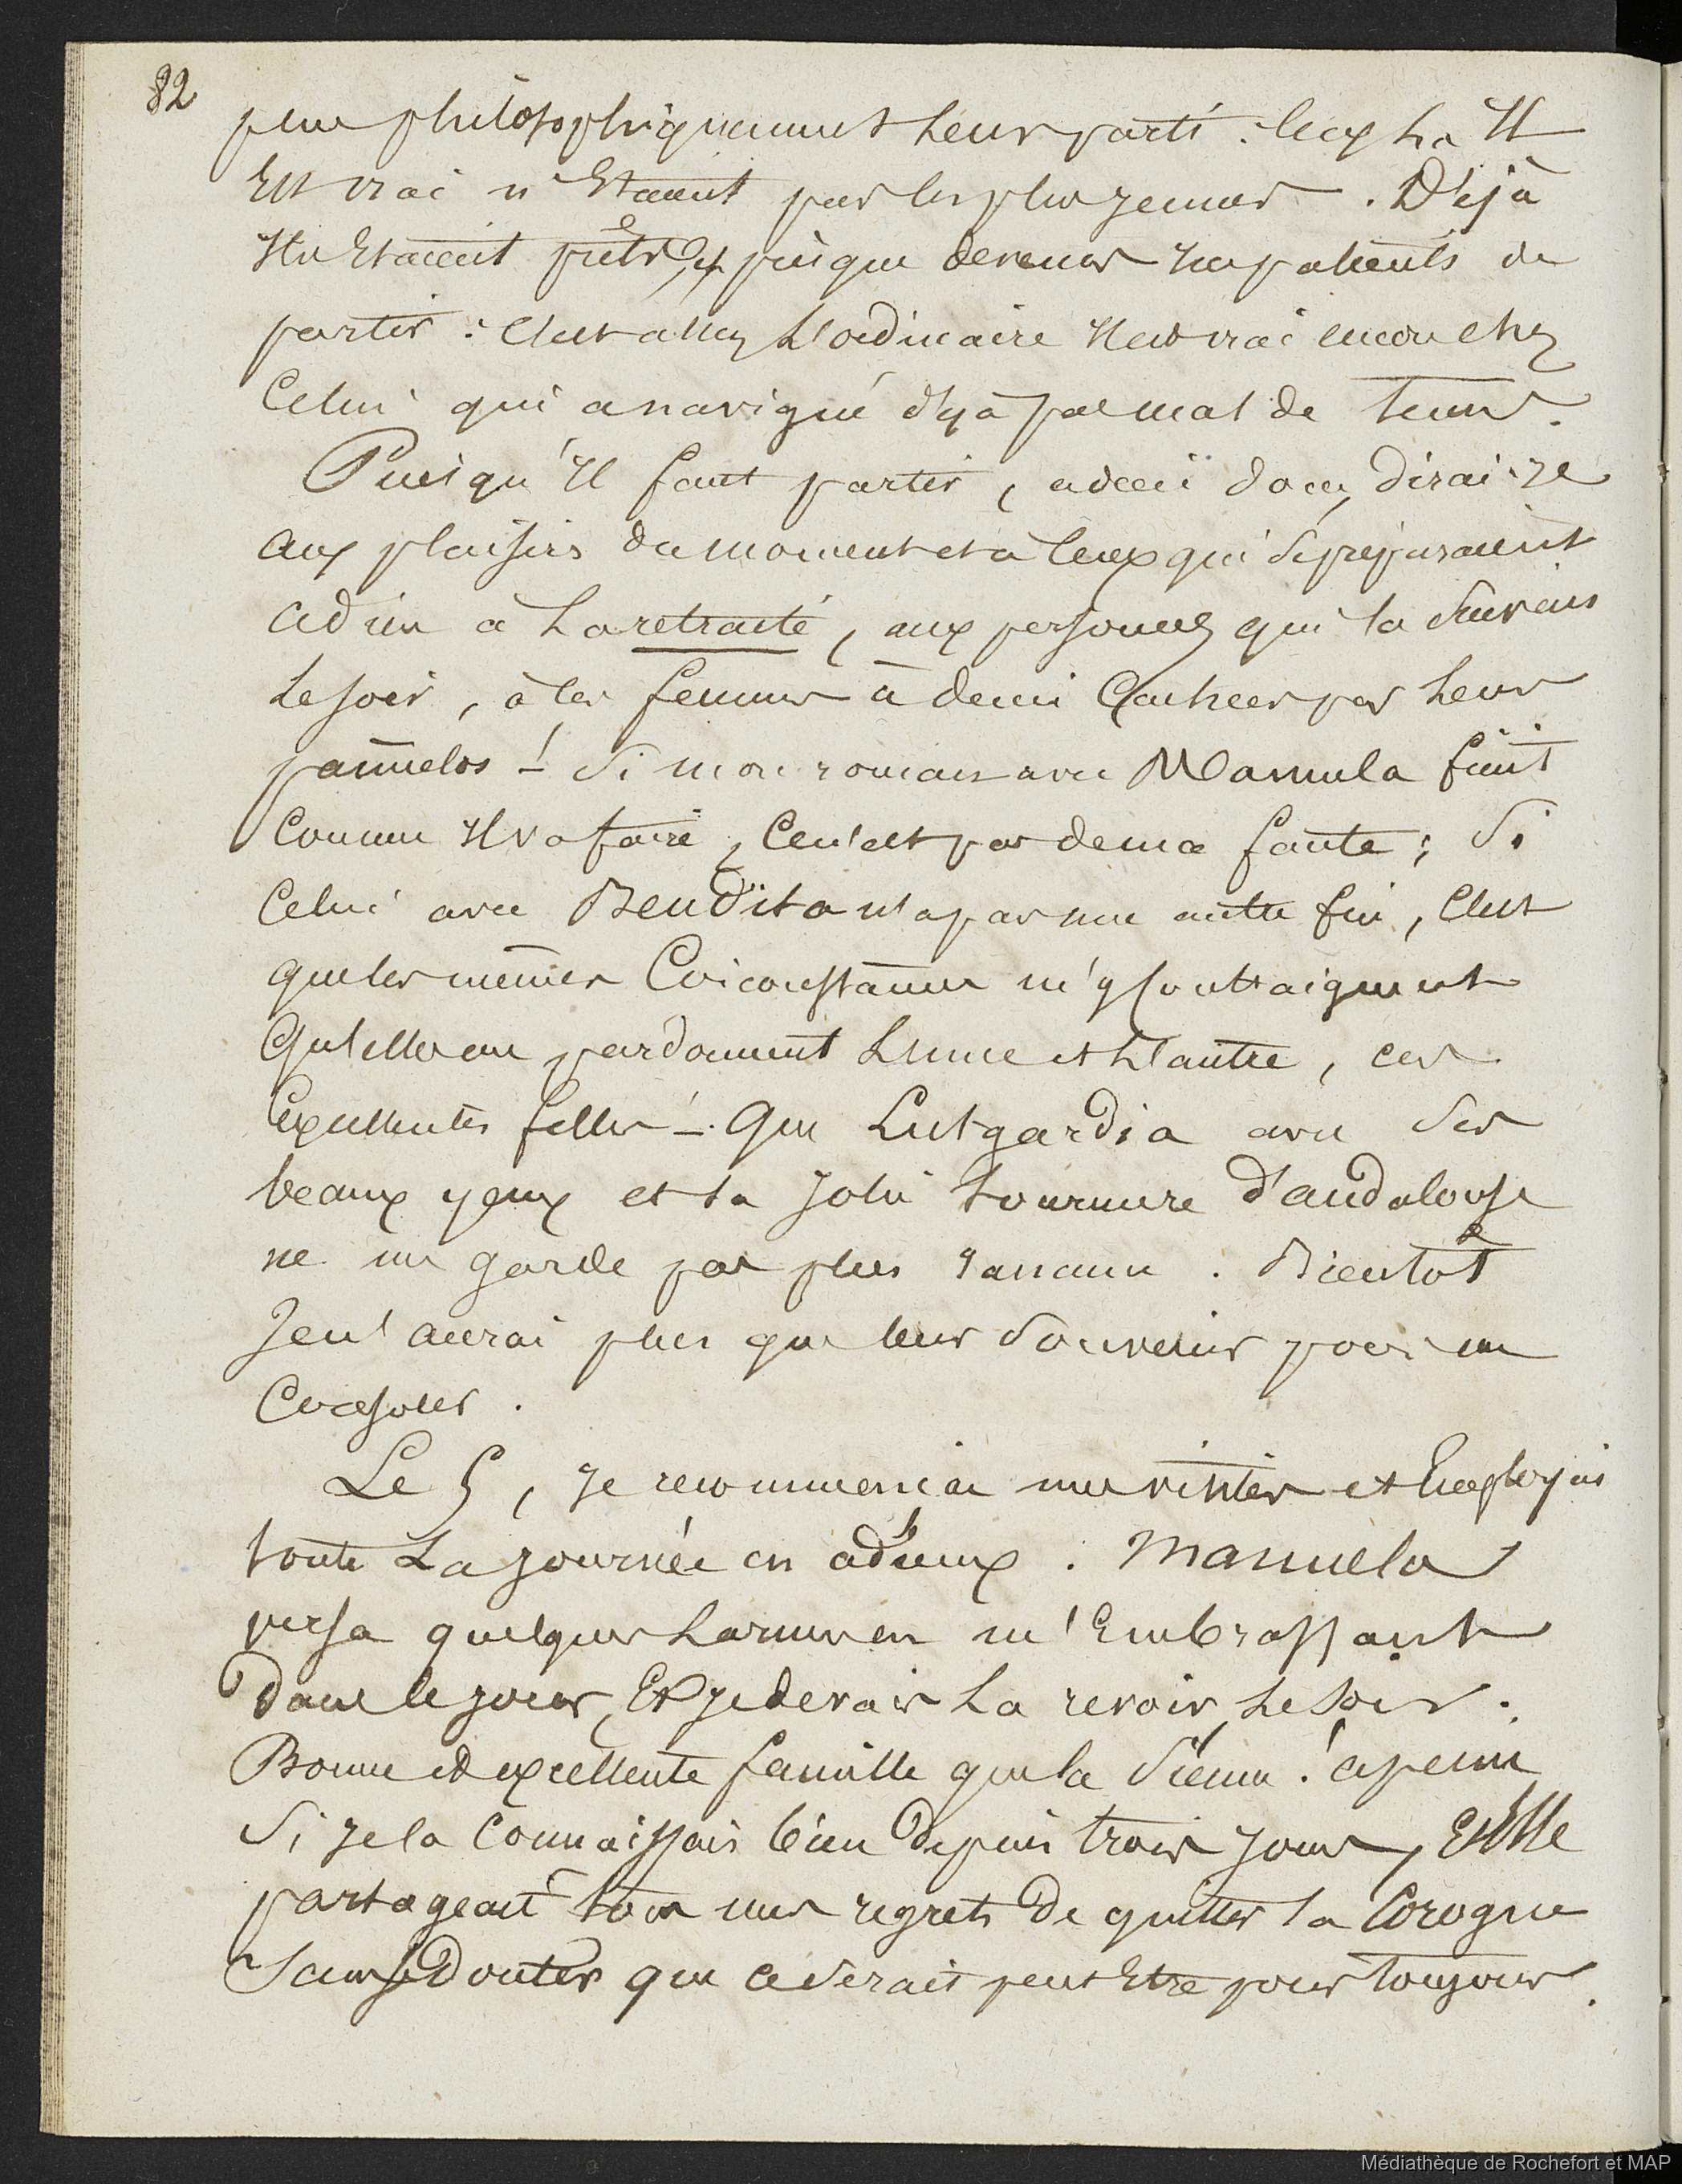 82
plus philosophiquement leur parti. Ceux là Il
Est vrai n'Etaient pas les plus jeunes. Déjà
Ils Etaient prêts et presque devenus Impatients de
partir : C'est assez l'ordinaire Il est vrai encore chez
Celui qui a navigué déjà pas mal de tems.
Puisqu'Il faut partir, adieu donc, dirai-je
aux plaisirs du moment et à ceux qui se préparaient
adieu à la retraite, aux personnes qui la suivais
le soir, à ces femmes à demi Cachées par leurs
pannuelos ! Si mon roman avec Manuela finit
Comme Il va faire, Ce n'est pas de ma faute ; Si
Celui avec Bendita n'a pas une autre fin, C'est
que les mêmes Circonstances m'y Contraignent
Qu'elles me pardonnent l'une et l'autre, ces
Excellentes filles ! Que Lutgardia avec Ses
beaux yeux et sa Jolie tournure d'andalouse
ne me garde pas plus rancune. Bientôt
Je n'aurai plus que leur Souvenir pour me
Consoler.
Le 5, Je recommençai mes visites et Employai
toute La journée en adieux. Manuela
versa quelques Larmes en m'Embrassant
Dans le jour, Et je devais La revoir Le Soir.
Bonne et excellente famille que la Sienne ! à peine
Si je la Connaissais bien Depuis trois jours, Et Elle
partageait tous mes regrets De quitter la Corogne
Sans se Douter que ce Serait peut Etre pour toujours.
Médiathèque de Rochefort et MAP